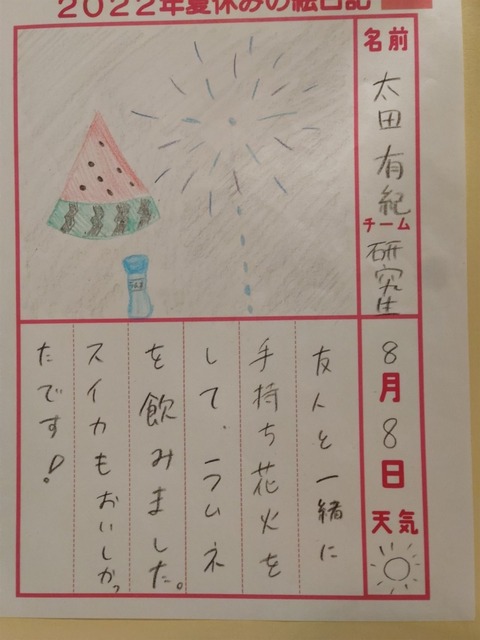 2022年夏休みの絵日記
名前
太田 有紀
チーム
研究生
8月8日
天気
友人と一緒に
手持ち花火を
して、ラムネ
を飲みました。
スイカもおいしかっ
たです!